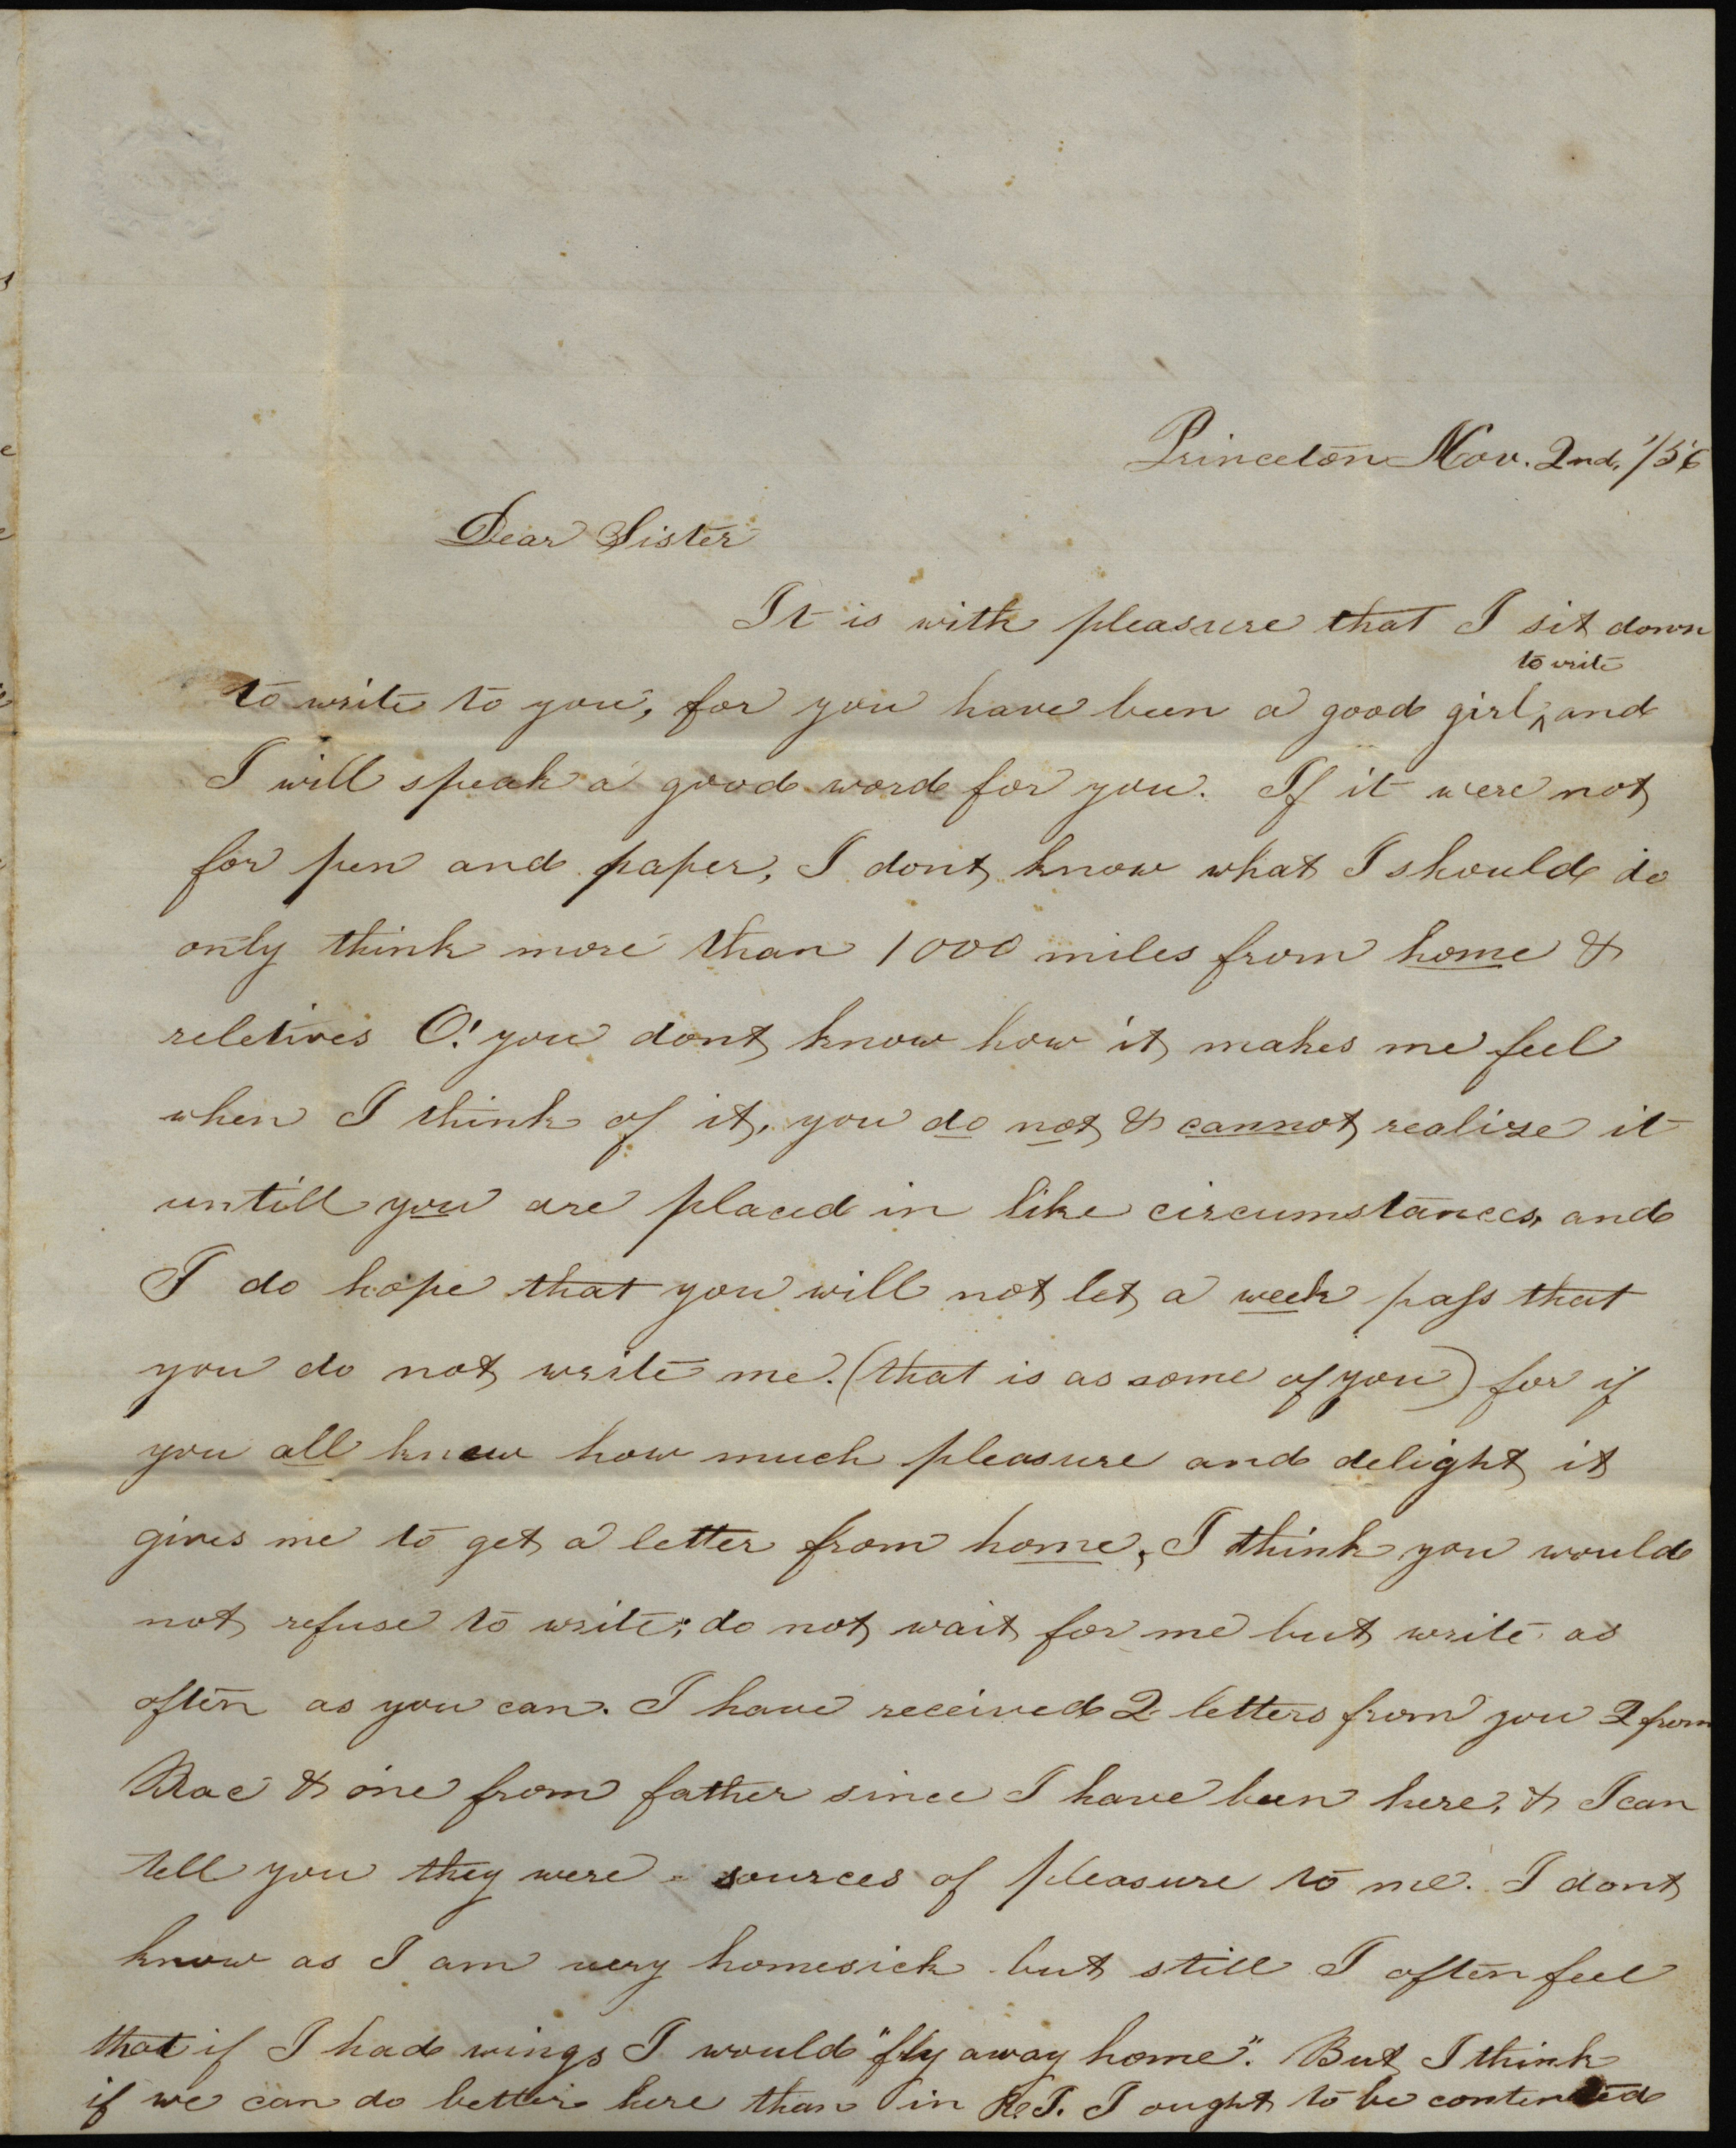 Princeton Nov. 2nd, /56
Dear Sister
It is with pleasure that I sit down
to write
to write to you, for you have been a good girl, ^ and
I will speak a good word for you. If it were not
for pen and paper, I dont know what I should do
only think more than 1000 miles from home &
reletives O! you dont know how it makes me feel
when I think of it, you do not & cannot realize it
untill you are placed in like circumstances, and
I do hope that you will not let a week pass that
you do not write me. (that is as some of you) for if
you all knew how much pleasure and delight it
gives me to get a letter from home, I think you would
not refuse to write; do not wait for me but write as
often as you can. I have received 2 letters from you 2 from
Mac & one from father since I have been here, & I can
tell you they were sources of pleasure to me. I dont
know as I am very homesick but still I often feel
that if I had wings I would "fly away home". But I think
if we can do better here than in R.I. I ought to be contented